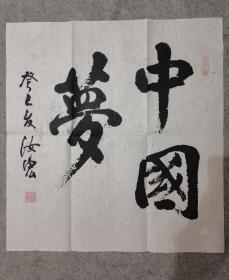 中國
夢
癸巳夏汝